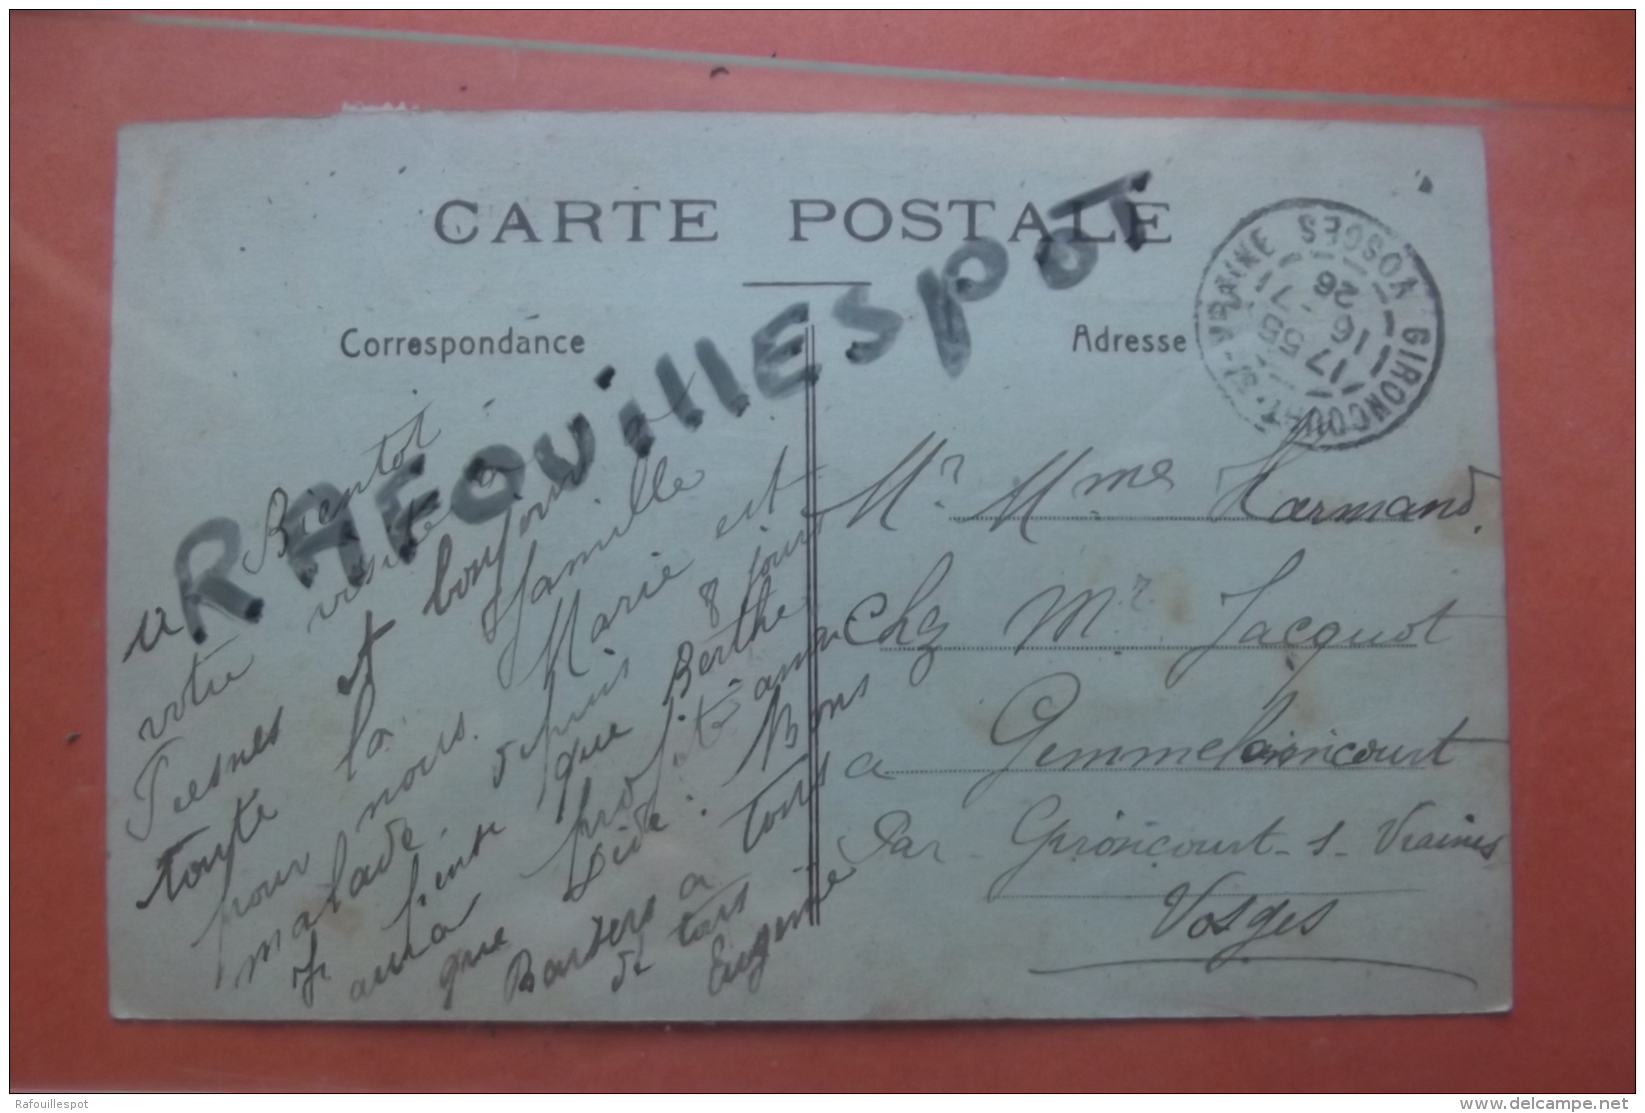 CARTE POSTALE
Correspondance
Adresse
RAFOUILLESPOT
GIRONCOURT-S-VRAINE VOSGES
17 35
16 -7
26
Bientot
votre visite a
Fresnes et bonjour a
toute la famille
pour nous. Marie est
malade depuis 8 jours
je pense que Berthe
aura profité
que Dédé. Bons
Baisers a tous
de tous
Eugenie
Mr Mme Harmand.
Chz Mr Jacquot
a Gemmelaincourt
Par Gironcourt-s-Vraines
Vosges
Rafouillespot
www.delcampe.net